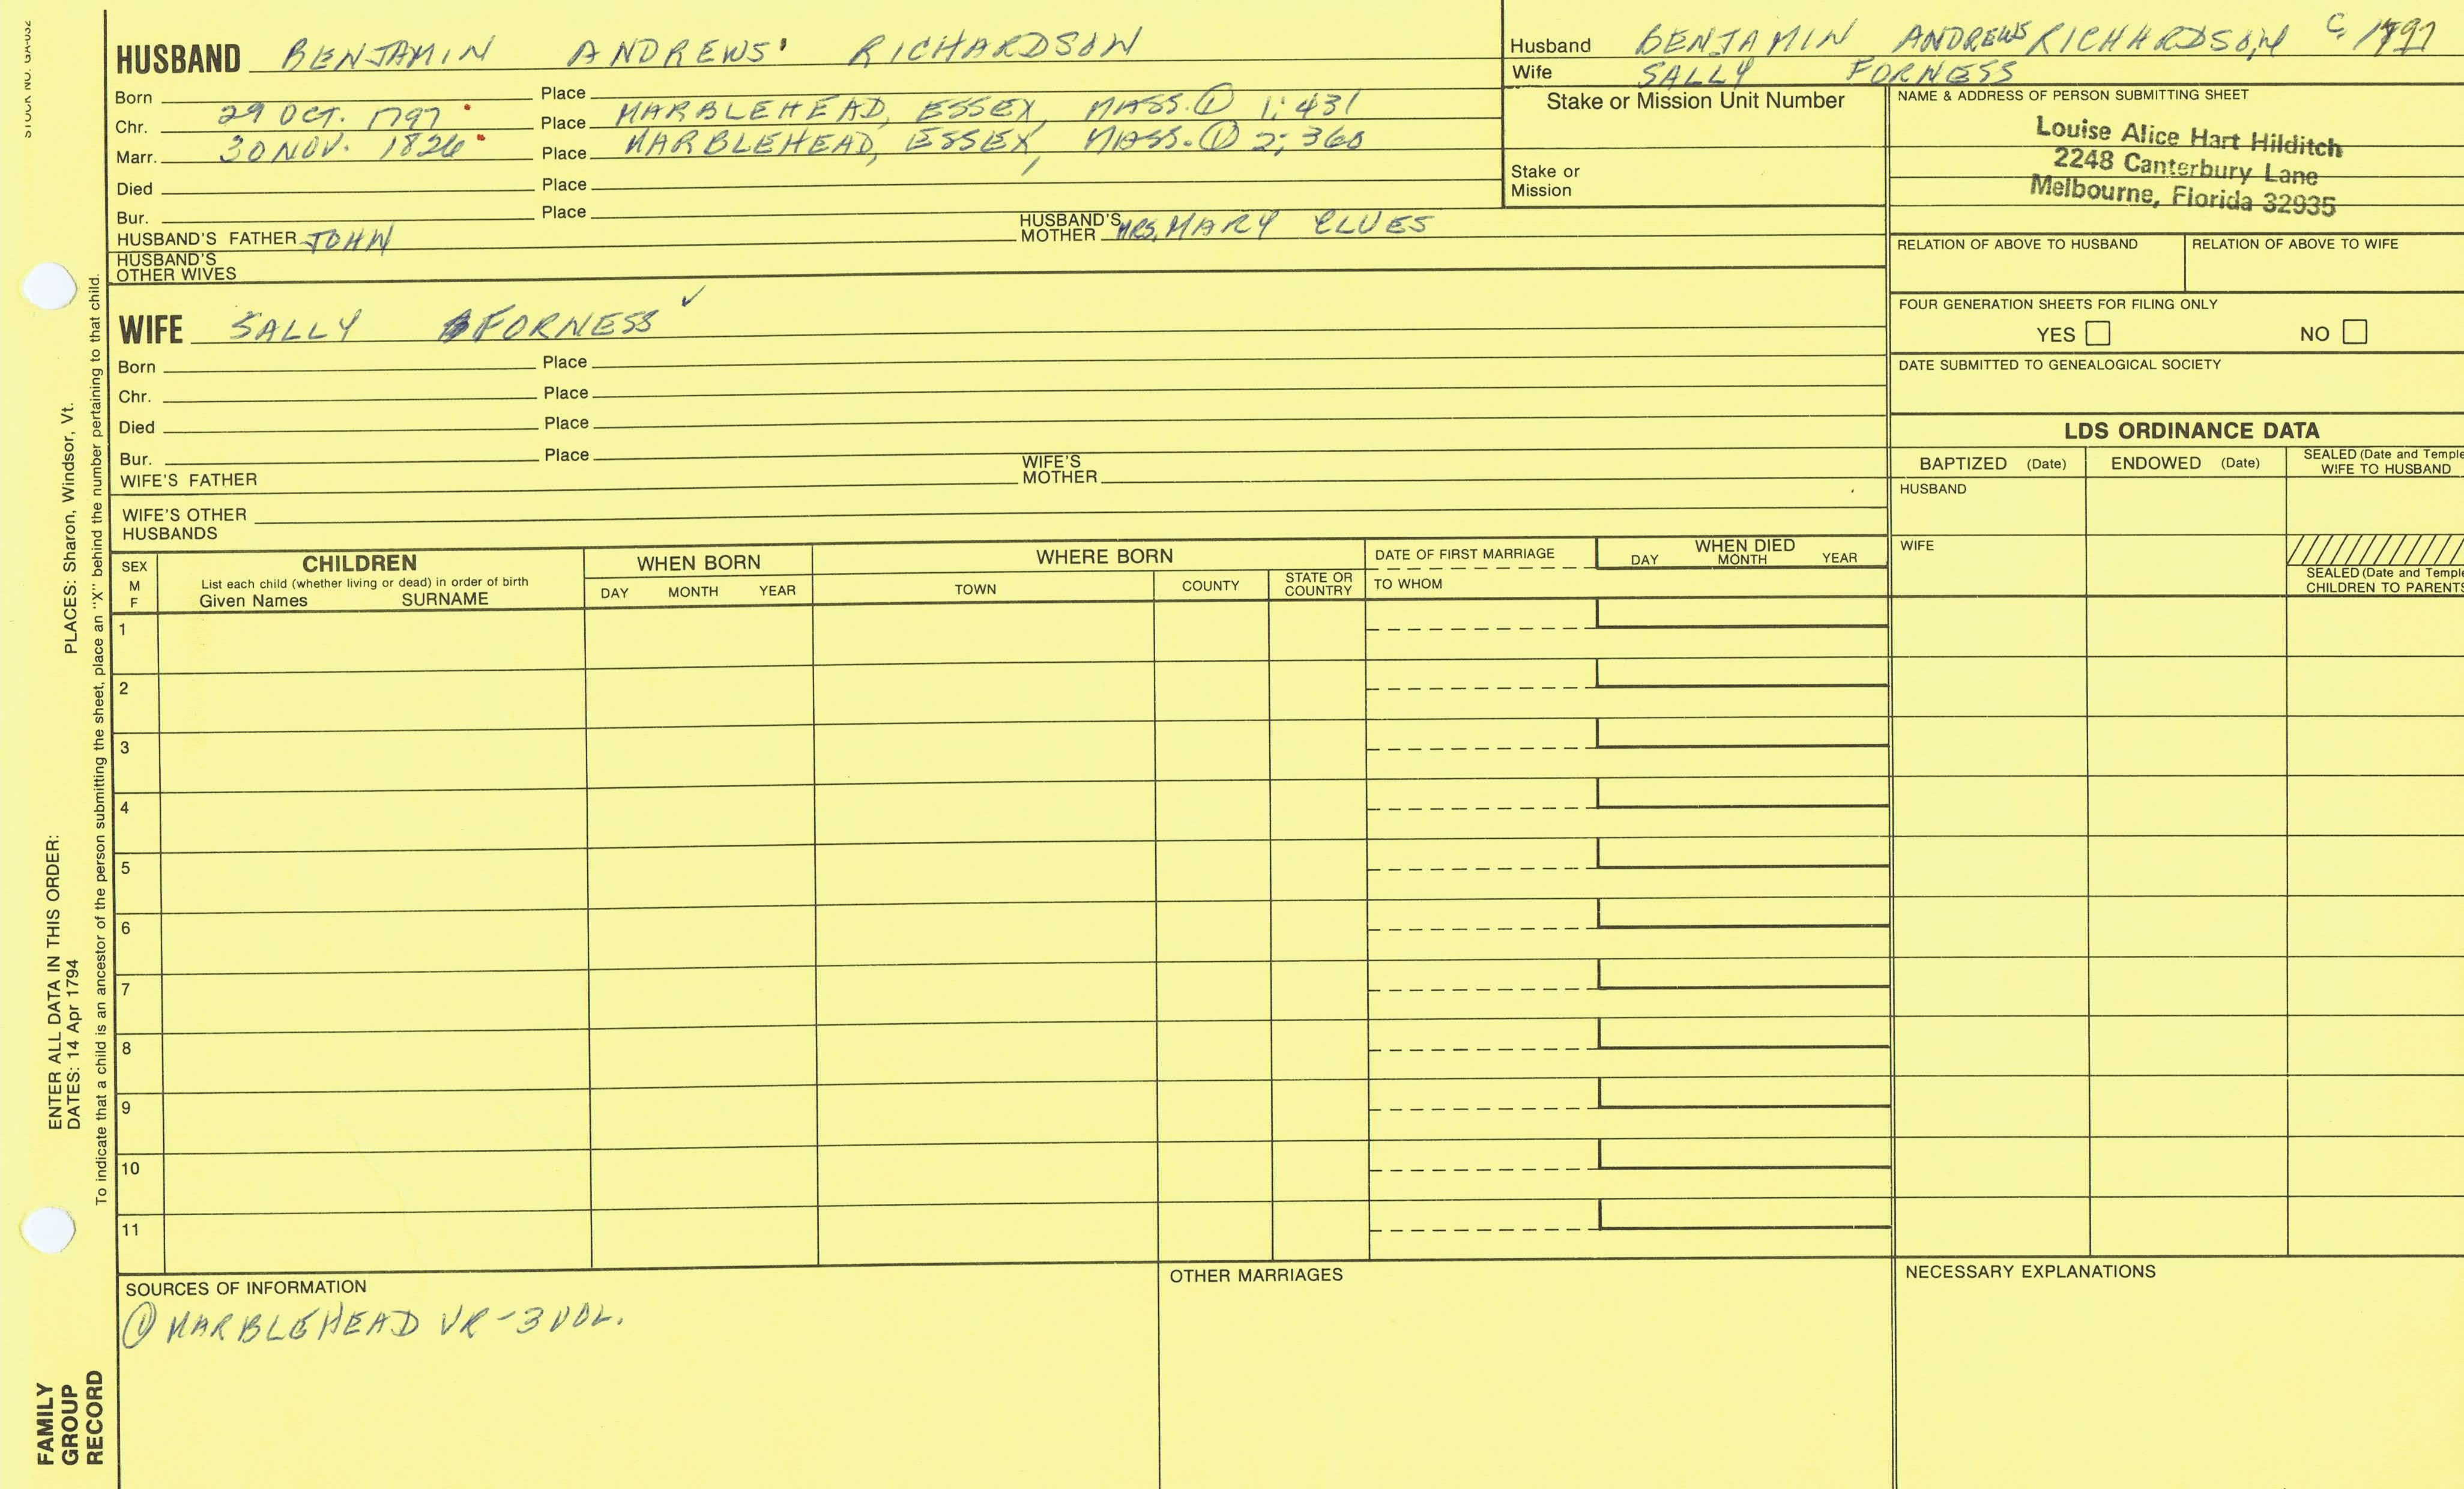 STOCK NO. GA-032
HUSBAND BENJAMIN ANDREWS RICHARDSON
Born Place
Chr. 29 OCT. 1797 Place MARBLEHEAD, ESSEX, MASS. ① 1:431
Marr. 30 NOV. 1826 Place MARBLEHEAD, ESSEX, MASS. ① 2:360
Died Place
Bur. Place
HUSBAND'S FATHER JOHN HUSBAND'S MOTHER MRS. MARY CLUES
HUSBAND'S OTHER WIVES
Husband BENJAMIN ANDREWS RICHARDSON C. 1797
Wife SALLY FORNESS
Stake or Mission Unit Number
Stake or Mission
NAME & ADDRESS OF PERSON SUBMITTING SHEET
Louise Alice Hart Hilditch
2248 Canterbury Lane
Melbourne, Florida 32935
RELATION OF ABOVE TO HUSBAND RELATION OF ABOVE TO WIFE
FOUR GENERATION SHEETS FOR FILING ONLY
YES NO
DATE SUBMITTED TO GENEALOGICAL SOCIETY
WIFE SALLY FORNESS ✓
Born Place
Chr. Place
Died Place
Bur. Place
WIFE'S FATHER WIFE'S MOTHER
WIFE'S OTHER HUSBANDS
LDS ORDINANCE DATA
BAPTIZED (Date) ENDOWED (Date) SEALED (Date and Temple
WIFE TO HUSBAND
HUSBAND
WIFE
SEALED (Date and Temple
CHILDREN TO PARENTS
SEX
M
F
CHILDREN
List each child (whether living or dead) in order of birth
Given Names SURNAME
WHEN BORN
DAY MONTH YEAR
WHERE BORN
TOWN COUNTY STATE OR COUNTRY
DATE OF FIRST MARRIAGE
TO WHOM
WHEN DIED
DAY MONTH YEAR
1
2
3
4
5
6
7
8
9
10
11
SOURCES OF INFORMATION
① MARBLEHEAD VR-3 VOL.
OTHER MARRIAGES
NECESSARY EXPLANATIONS
PLACES: Sharon, Windsor, Vt.
ENTER ALL DATA IN THIS ORDER:
DATES: 14 Apr 1794
To indicate that a child is an ancestor of the person submitting the sheet, place an "X" behind the number pertaining to that child.
FAMILY
GROUP
RECORD